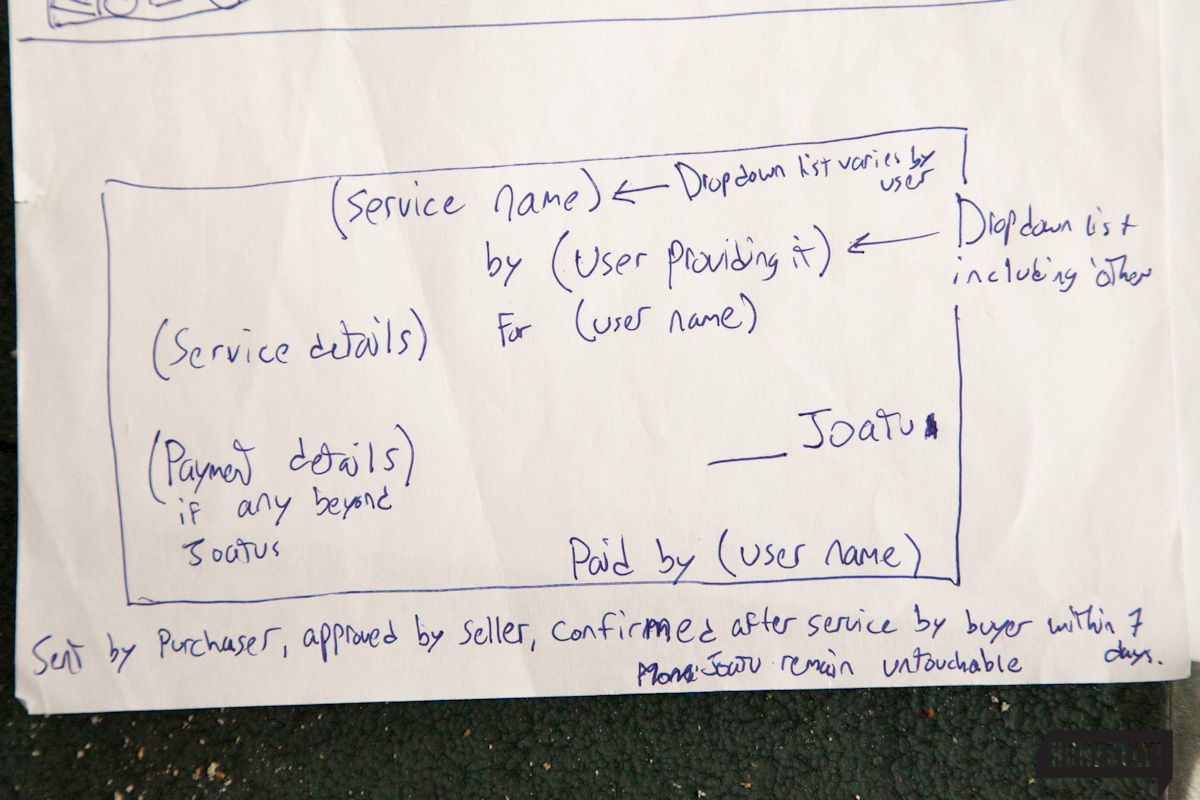 (Service name) ← Dropdown list varies by
user
by (User Providing it) ← Dropdown list
including 'other
For (user name)
(Service details)
___ Joatu
(Payment details)
if any beyond
Joatus
Paid by (user name)
Sent by Purchaser, approved by seller, confirmed after service by buyer within 7
days.
Joatu remain untouchable